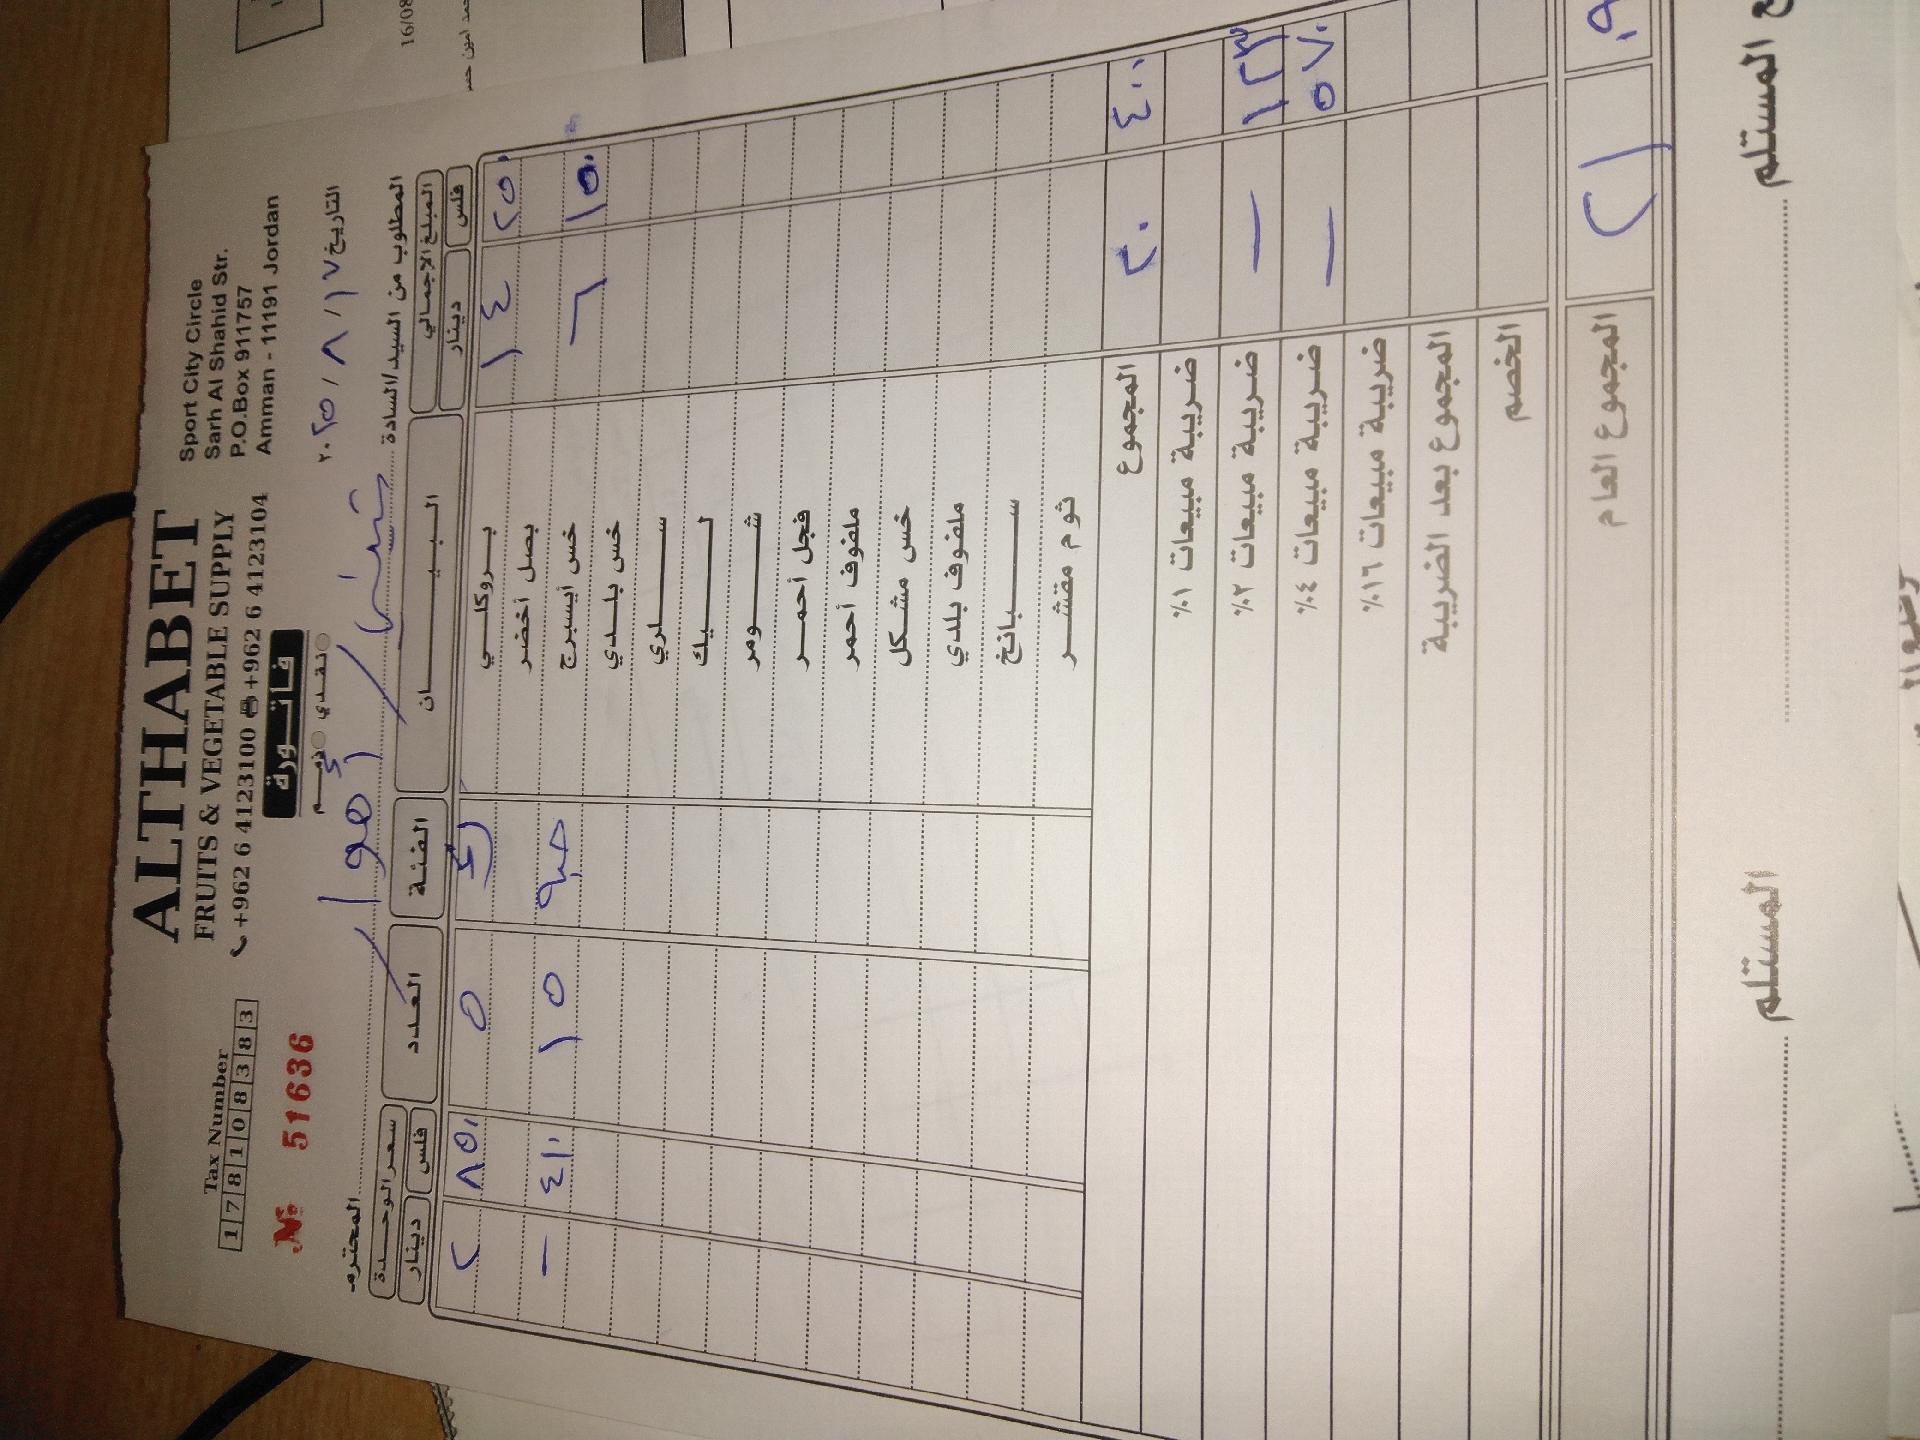 ALTHABET
FRUITS & VEGETABLE SUPPLY
+962 6 4123100 +962 6 4123104
Sport City Circle
Sarh Al Shahid Str.
P.O.Box 911757
Amman - 11191 Jordan
Tax Number
1 7 8 1 0 8 3 8 3
№ 51636
فاتورة
ذمم نقدي
التاريخ ١٧ / ٨ / ٢٠٢٥
المطلوب من السيد/السادة المحترم
المبلغ الإجمالي البيان الفئة العدد سعر الوحدة
فلس دينار فلس دينار
٢٥٠ ١٤ بروكلي ٥ ٨٥٠ ٢
بصل أخضر
١٥٠ ٦ خس أيسبرج حبه ١٥ ٤١٠ -
خس بلدي
سلري
ليك
شومر
فجل أحمر
ملفوف أحمر
خس مشكل
ملفوف بلدي
سبانخ
ثوم مقشر
٤٠٠ ٢٠ المجموع
ضريبة مبيعات ١%
١٢٣ - ضريبة مبيعات ٢%
٥٧٠ - ضريبة مبيعات ٤%
ضريبة مبيعات ١٦%
المجموع بعد الضريبة
الخصم
٢١ المجموع العام
المستلم المستلم
16/08